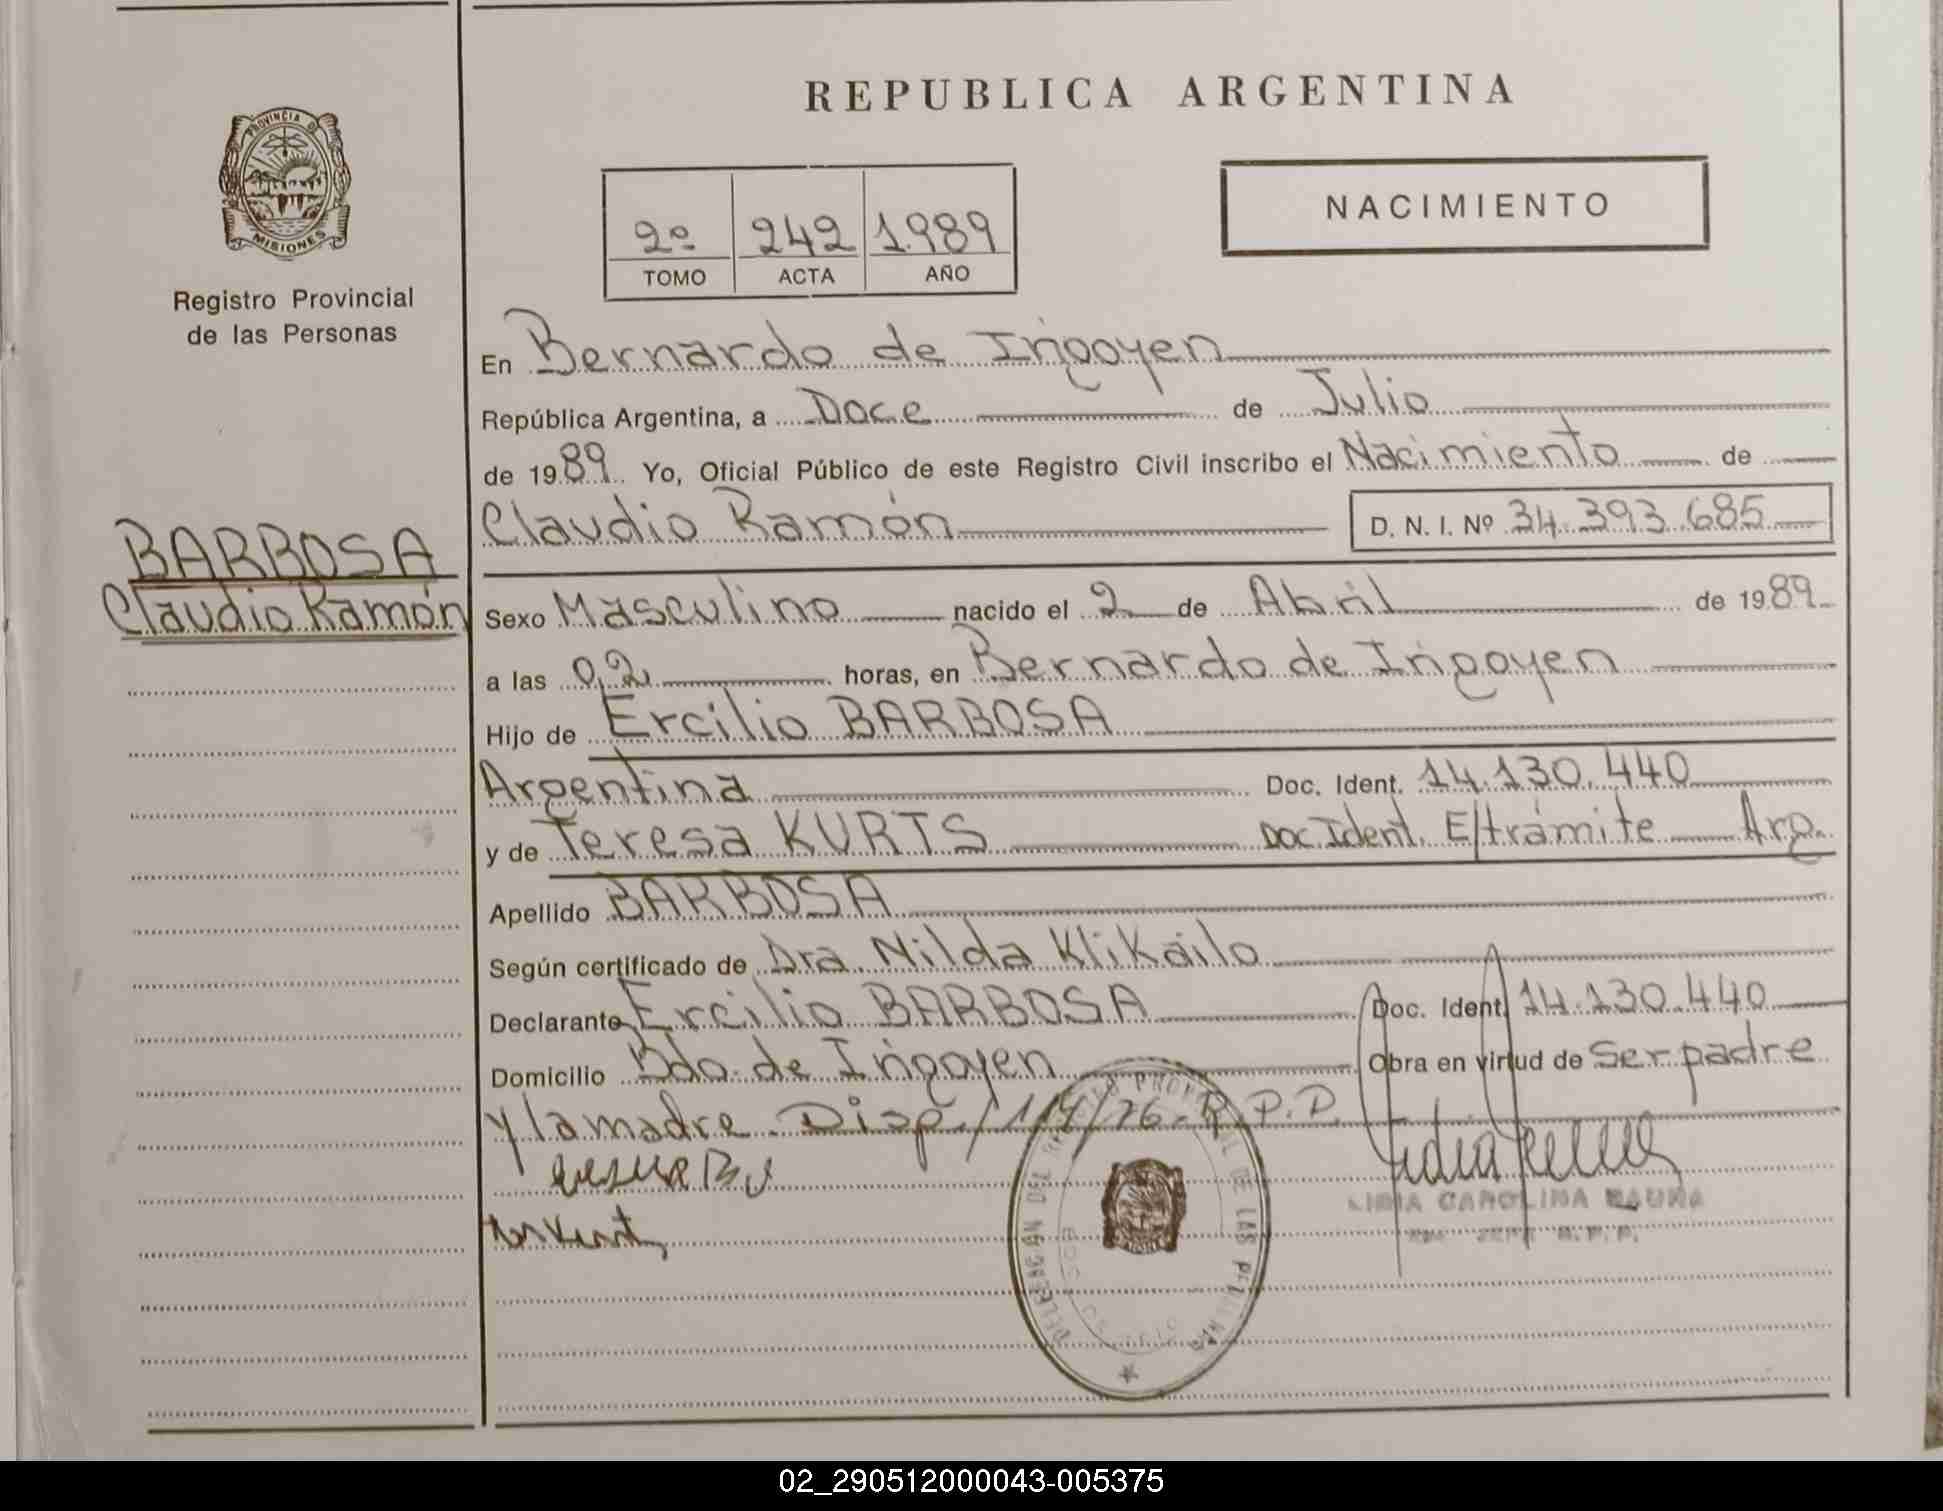 REPUBLICA ARGENTINA
PROVINCIA DE
MISIONES
Registro Provincial
de las Personas
NACIMIENTO
2º 242 1989
TOMO ACTA AÑO
En Bernardo de Irigoyen
República Argentina, a Doce de Julio
de 1989 Yo, Oficial Público de este Registro Civil inscribo el Nacimiento de
Claudio Ramón D. N. I. Nº 34.393.685
BARBOSA
Claudio Ramón
Sexo Masculino nacido el 2 de Abril de 1989
a las 02 horas, en Bernardo de Irigoyen
Hijo de Ercilio BARBOSA
Argentina Doc. Ident. 14.130.440
y de Teresa KURTS Doc Ident. E/trámite Arg.
Apellido BARBOSA
Según certificado de Dra. Nilda Klikailo
Declarante Ercilio BARBOSA Doc. Ident. 14.130.440
Domicilio Bdo. de Irigoyen Obra en virtud de Ser padre
y la madre. Disp./114/76-R.P.P.
DELEGACION DEL REGISTRO PROVINCIAL DE LAS PERSONAS
LIDIA CAROLINA
JEFE R.P.P.
02_290512000043-005375